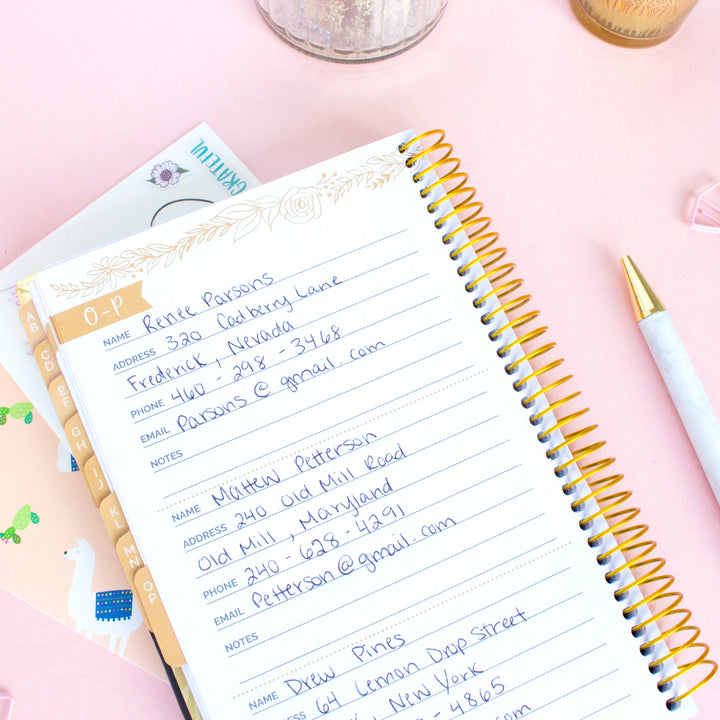 GRATEFUL
O-P
AB
CD
EF
GH
IJ
KL
MN
OP
NAME Renee Parsons
ADDRESS 320 Cadberry Lane
Frederick, Nevada
PHONE 460-298-3468
EMAIL Parsons@gmail.com
NOTES
NAME Mattew Petterson
ADDRESS 240 Old Mill Road
Old Mill, Maryland
PHONE 240-628-4291
EMAIL Petterson@gmail.com
NOTES
NAME Drew Pines
64 Lemon Drop Street
, New York
-4865
.com